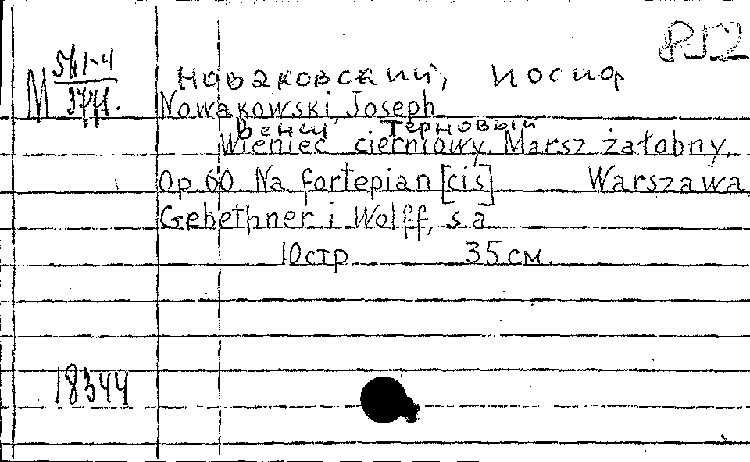 М 561-4
3771.
Новаковский, Иосиф
Nowakowski, Joseph
Венец Терновый
Wieniec cierniowy. Marsz żałobny,
Op 60 Na fortepian [cis] Warszawa
Gebethner i Wolff, s.a
10 стр. 35 см.
18344